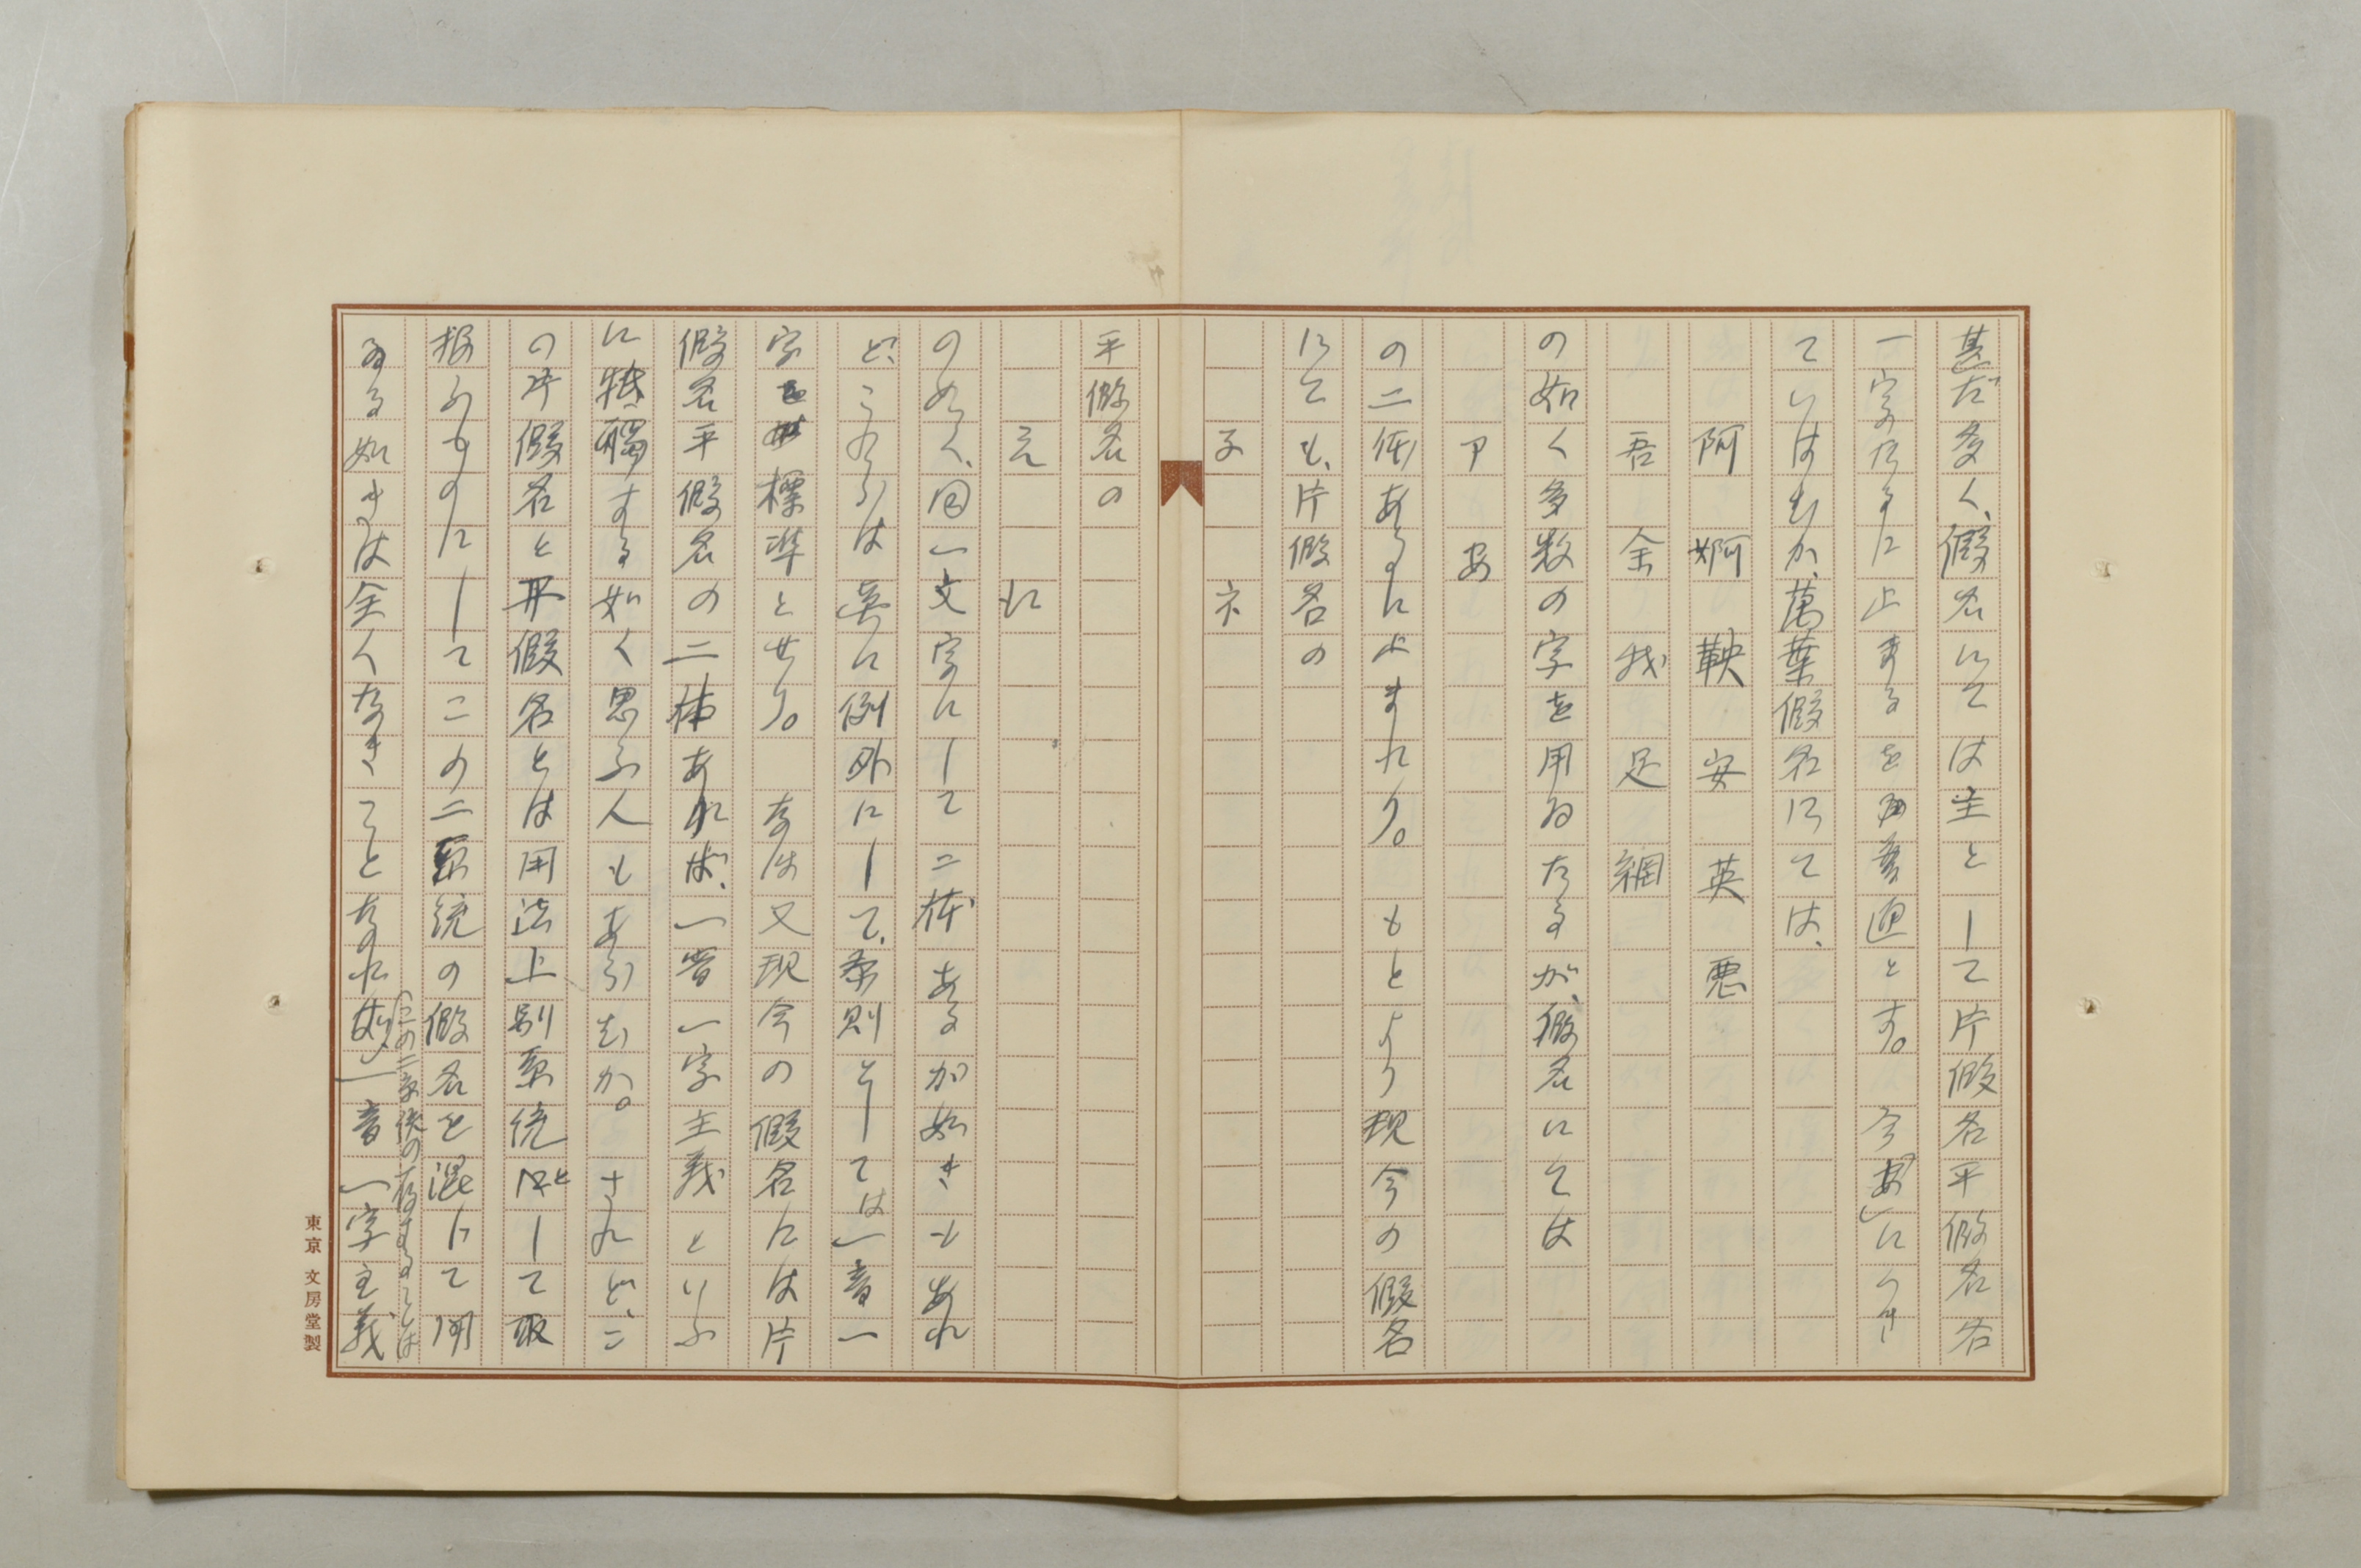 甚だ多く、假名にては主として片假名平假名各
一字のたるに止まるを普通とす。今「あ」につき
ていはむか、萬葉假名にては、
阿 婀 鞅 安 英 悪
吾 余 我 足 網
の如く多数の字を用ゐたるが、假名にては
ア あ
の二体あるに止まれり。もとより現今の假名
にても、片假名の
子 ネ
平假名の
え に
のめく、同一文字にして二体あるが如きもあれ
ど、これらは要に例外にして、条則としては一音一
字を標準とせり。なほ又現今の假名には片
假名平假名の二体あれば、一音一字主義といふ
に牴觸する如く思ふ人もあらむか。されど、こ
の片假名と平假名とは用法上別系統として取
扱ふものにしてこの二系統の假名を混じて用
ゐる如きは全くなきことなれば(この二系統の存することは)一音一字主義
東京 文房堂製